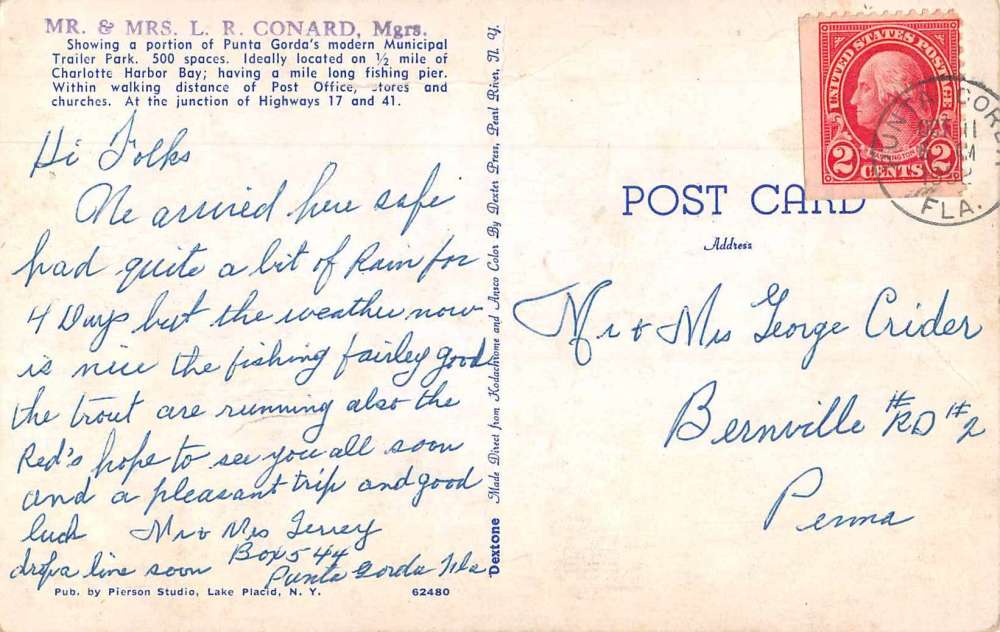 MR. & MRS. L. R. CONARD, Mgrs.
Showing a portion of Punta Gorda's modern Municipal
Trailer Park. 500 spaces. Ideally located on ½ mile of
Charlotte Harbor Bay; having a mile long fishing pier.
Within walking distance of Post Office, stores and
churches. At the junction of Highways 17 and 41.
Hi Folks
We arrived here safe
had quite a bit of Rain for
4 Days but the weather now
is nice the fishing fairley good
the trout are running also the
Red's hope to see you all soon
and a pleasant trip and good
luck Mr & Mrs
drop a line soon Box 544
Punta Gorda Fla
Pub. by Pierson Studio, Lake Placid, N. Y. 62480
Dextone Made Direct from Kodachrome and Ansco Color By Dexter Press, Pearl River, N. Y.
UNITED STATES POSTAGE
WASHINGTON
2 CENTS 2
PUNTA GORDA
OCT 11
AM
FLA.
POST CARD
Address
Mr & Mrs George Crider
Bernville #RD #2
Penna